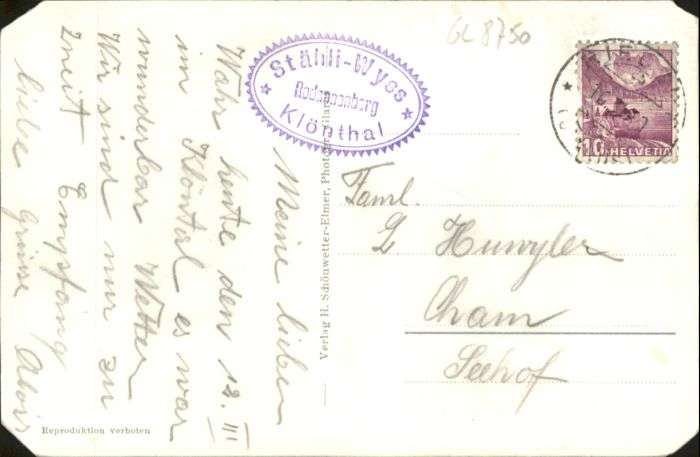 GL 8750
Stähli-Wyss
Klönthal
HELVETIA
10
Meine lieben
Wahr heute den 12. III
im Klöntal es war
wunderbar Wetter
Wir sind nur zu
zweit Empfang
liebe Grüsse Alois
Verlag H. Schönwetter-Elmer, Photogr. Glarus
Faml.
Huwyler
Cham
Seehof
Reproduktion verboten